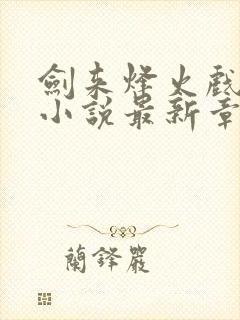 劍来烽火戲
小說最新章
蘭鋒嚴